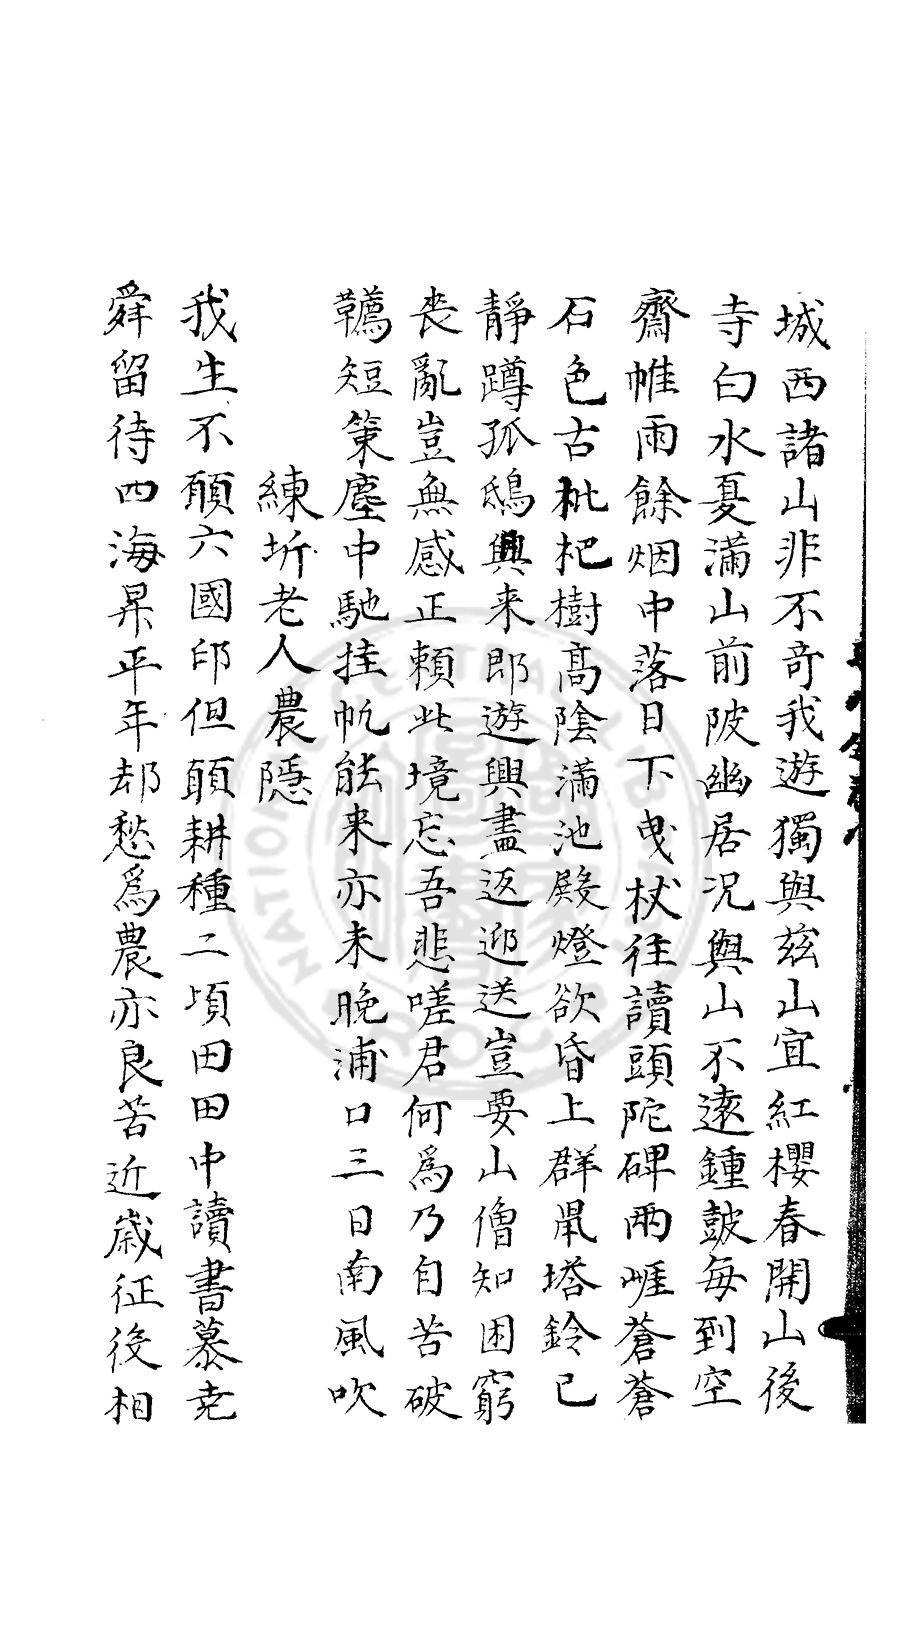 城西諸山非不奇我遊獨與兹山宜紅櫻春開山後
寺白水夏滿山前陂幽居况與山不遠鍾皷每到空
齋帷雨餘烟中落日下曳杖往讀頭陀碑兩崕蒼蒼
石色古枇杷樹髙陰滿池殿燈欲昏上群鼠塔鈴已
靜蹲孤鴟興来即遊興盡返迎送豈要山僧知困窮
丧亂豈無感正頼此境忘吾悲嗟君何爲乃自苦破
韉短策塵中馳挂帆能来亦未晚浦口三日南風吹
練圻老人農隱
我生不願六國印但願耕種二頃田田中讀書慕尭
舜留待四海昇平年却愁爲農亦良苦近歳征徭相
NATIONAL CENTRAL LIBRARY R.O.C.